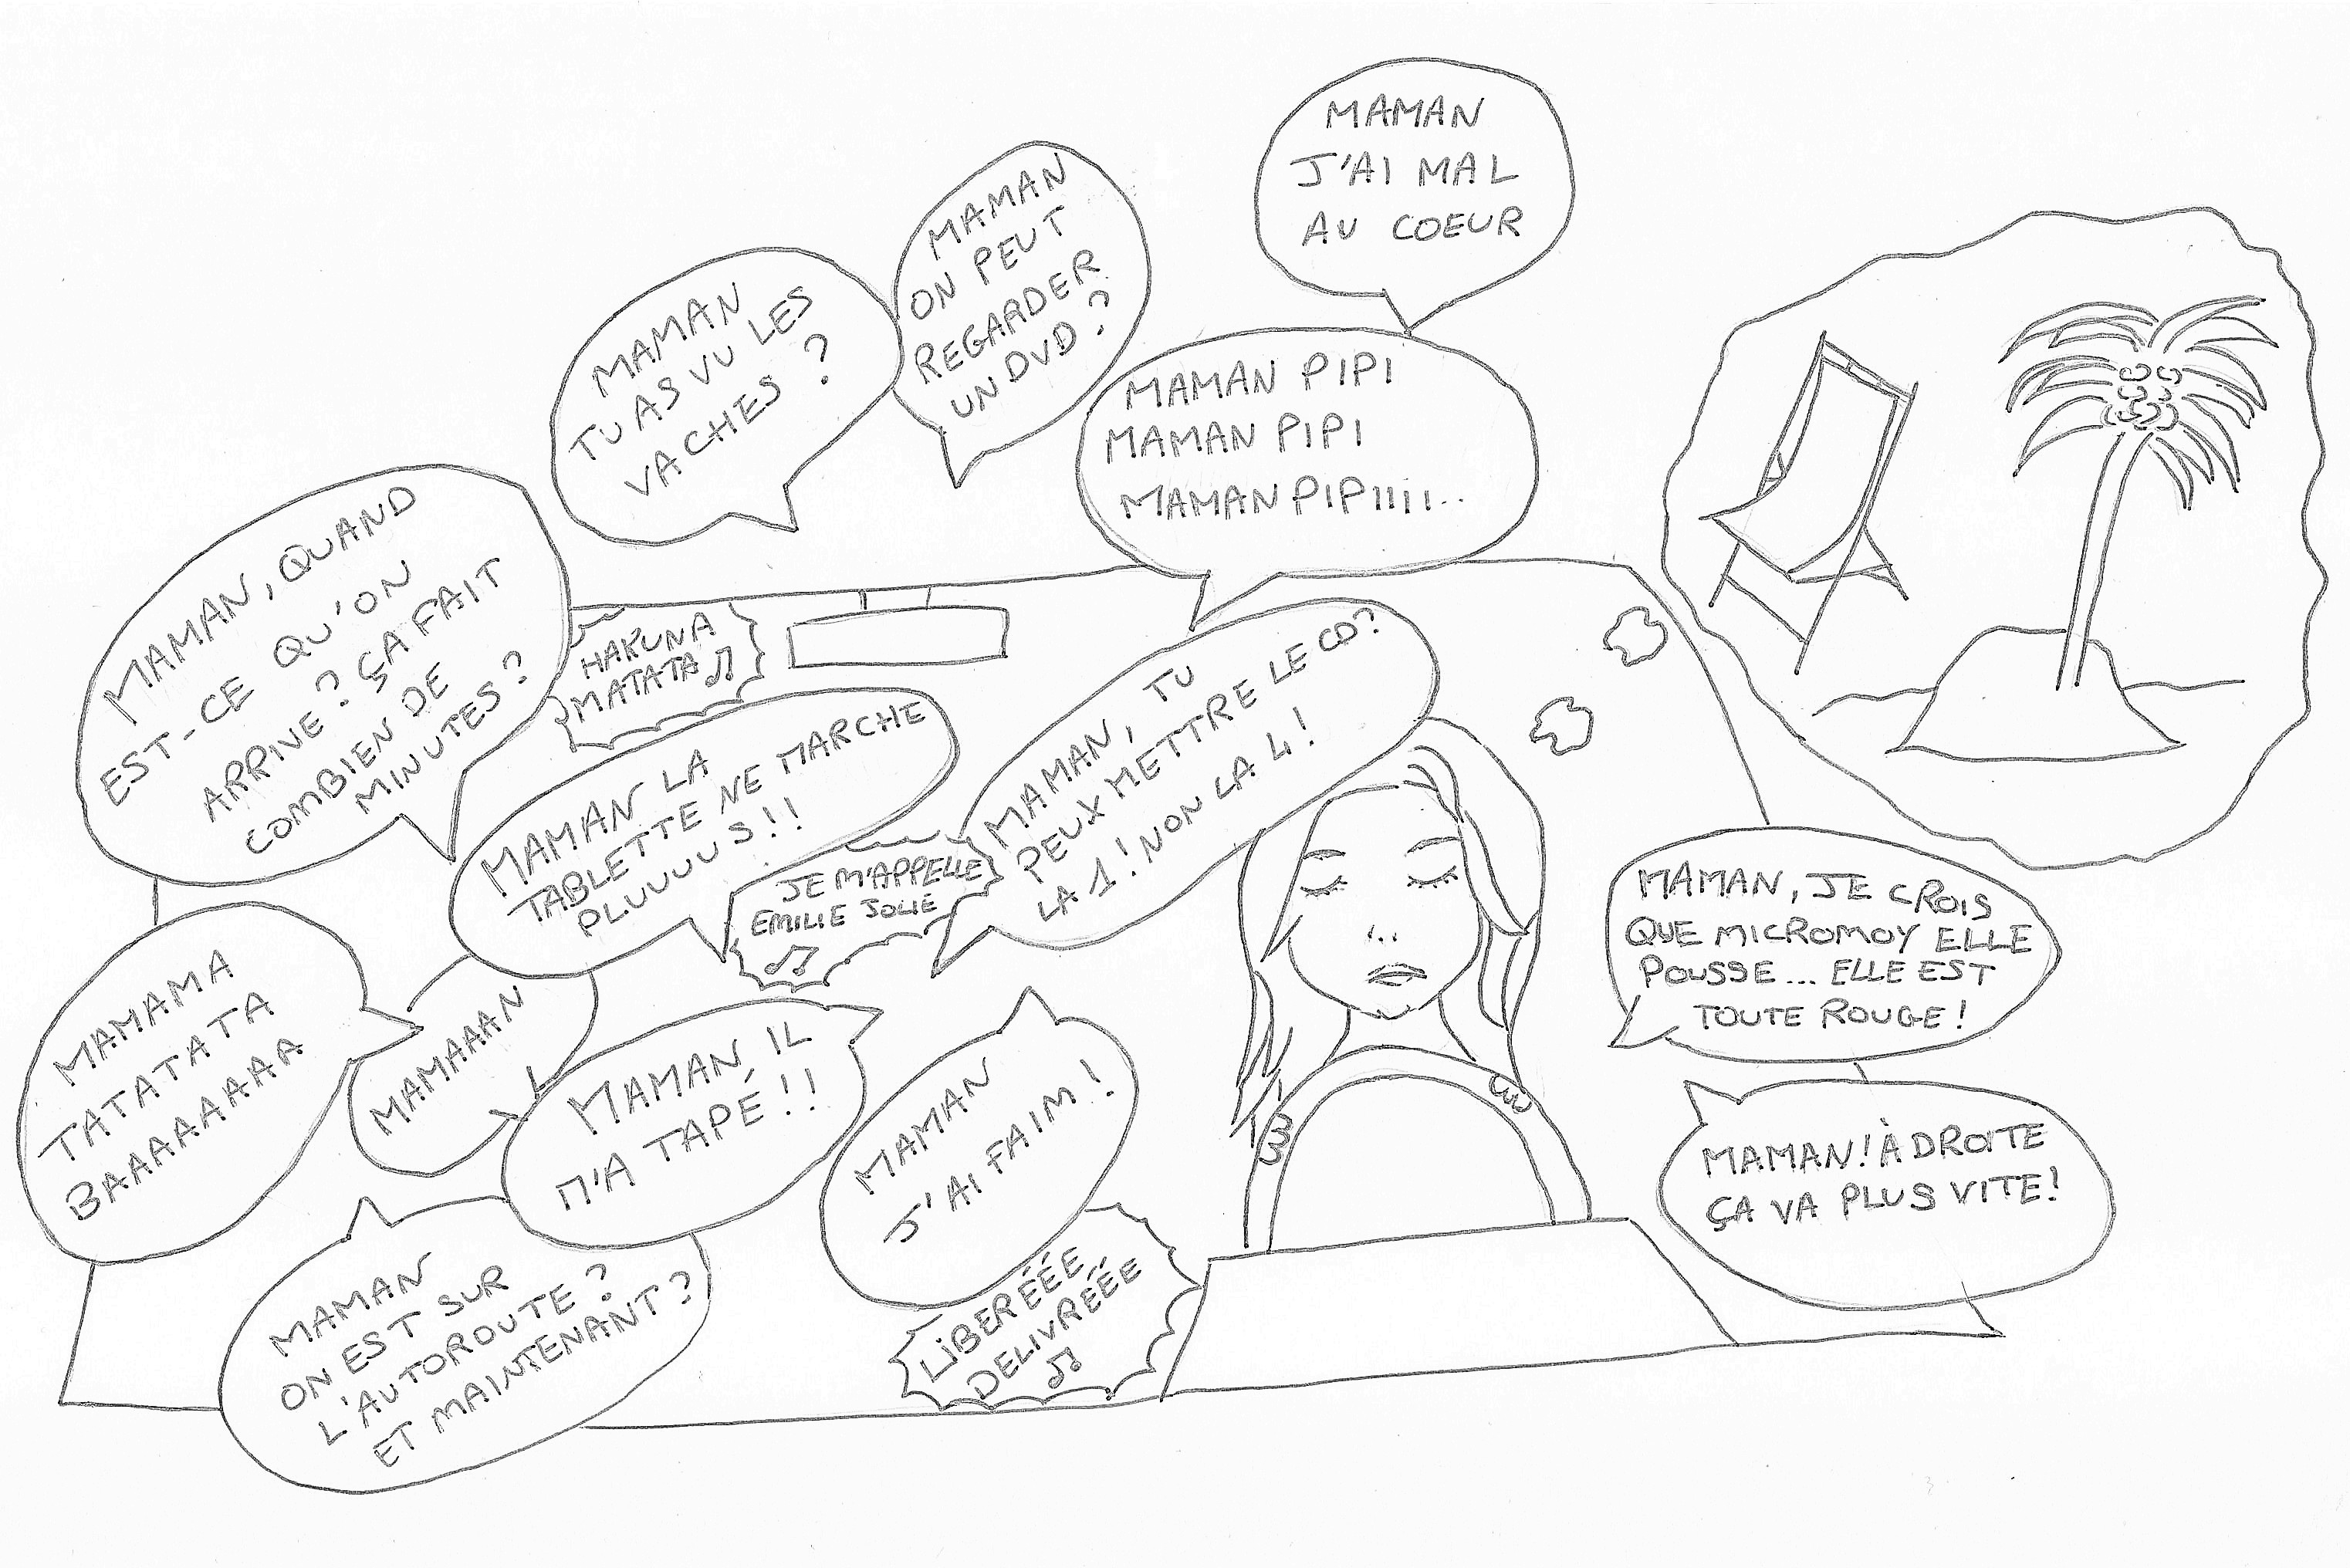 MAMAN
J'AI MAL
AU COEUR
MAMAN
ON PEUT
REGARDER
UN DVD ?
MAMAN
TU AS VU LES
VACHES ?
MAMAN PIPI
MAMAN PIPI
MAMAN PIPIIII...
MAMAN, QUAND
EST-CE QU'ON
ARRIVE ? ÇA FAIT
COMBIEN DE
MINUTES ?
HAKUNA
MATATA
MAMAN, TU
PEUX METTRE LE CD ?
LA 1 ! NON LA 4 !
MAMAN LA
TABLETTE NE MARCHE
PLUUUUS !!
JE M'APPELLE
EMILIE JOLIE
MAMAN, JE CROIS
QUE MICROMOY ELLE
POUSSE... ELLE EST
TOUTE ROUGE !
MAMAMA
TATATATA
BAAAAAAAA
MAMAAAN
MAMAN IL
M'A TAPÉ !!
MAMAN
J'AI FAIM !
MAMAN ! À DROITE
ÇA VA PLUS VITE !
MAMAN
ON EST SUR
L'AUTOROUTE ?
ET MAINTENANT ?
LIBERÉÉE
DELIVRÉÉE